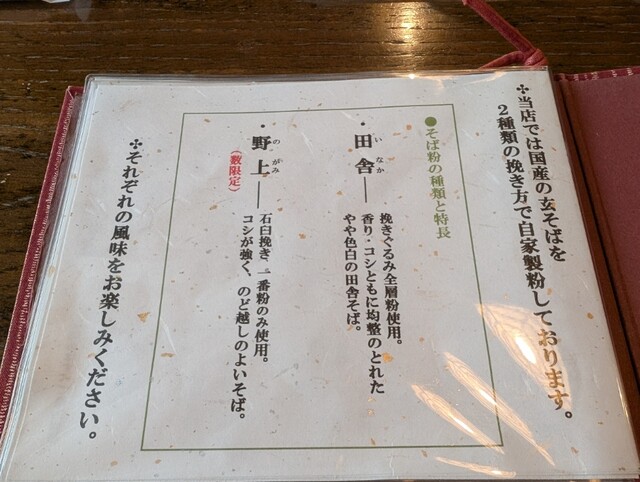 ✣当店では国産の玄そばを
2種類の挽き方で自家製粉しております。
●そば粉の種類と特長
・田舎――
いなか
挽きぐるみ全層粉使用。
香り・コシともに均整のとれた
やや色白の田舎そば。
・野上――
のがみ
(数限定)
石臼挽き、一番粉のみ使用。
コシが強く、のど越しのよいそば。
✣それぞれの風味をお楽しみください。